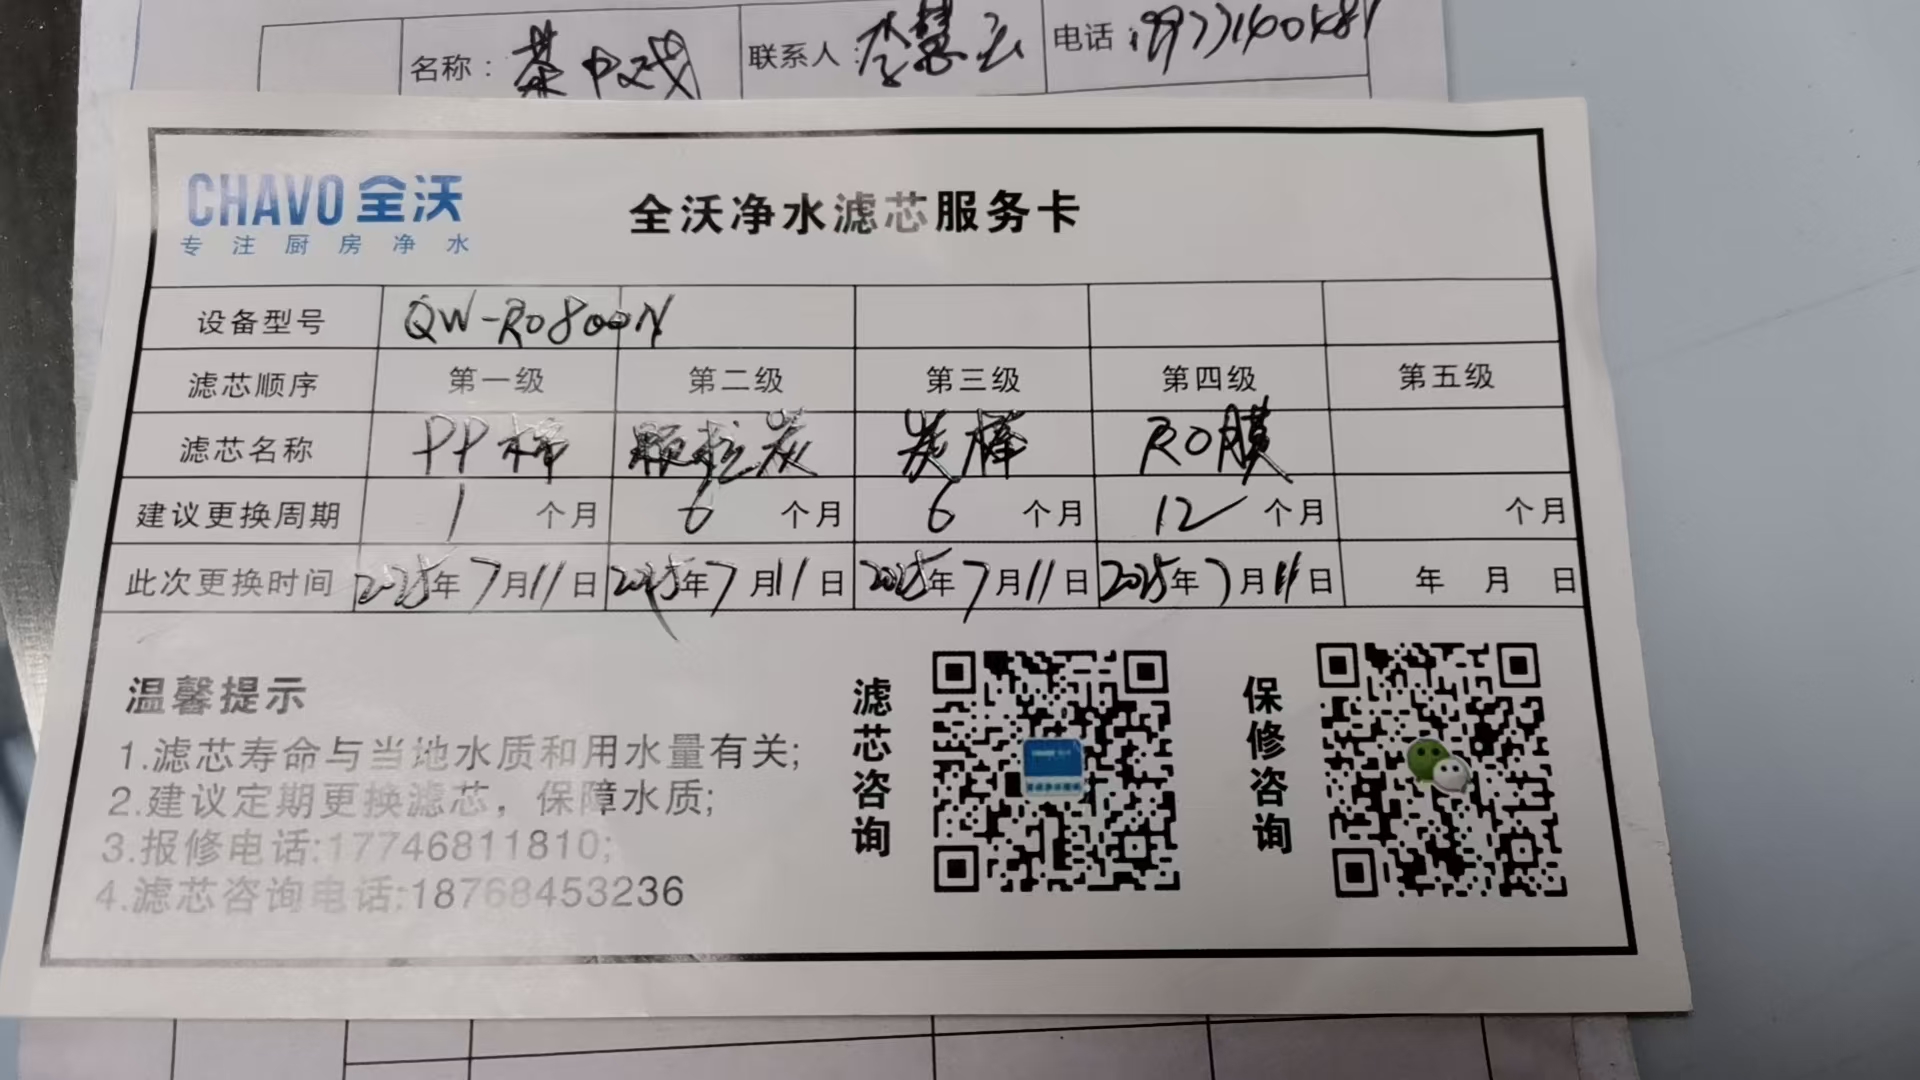 名称：茶中戏 联系人：李慧云 电话：
CHAVO 全沃
专注厨房净水
全沃净水滤芯服务卡
设备型号 QW-RO800N
滤芯顺序 第一级 第二级 第三级 第四级 第五级
滤芯名称 PP棉 颗粒炭 炭棒 RO膜
建议更换周期 1个月 6个月 6个月 12个月 个月
此次更换时间 2025年7月11日 2025年7月11日 2025年7月11日 2025年7月11日 年 月 日
温馨提示
1.滤芯寿命与当地水质和用水量有关;
2.建议定期更换滤芯，保障水质;
3.报修电话:17746811810;
4.滤芯咨询电话:18768453236
滤芯咨询
保修咨询